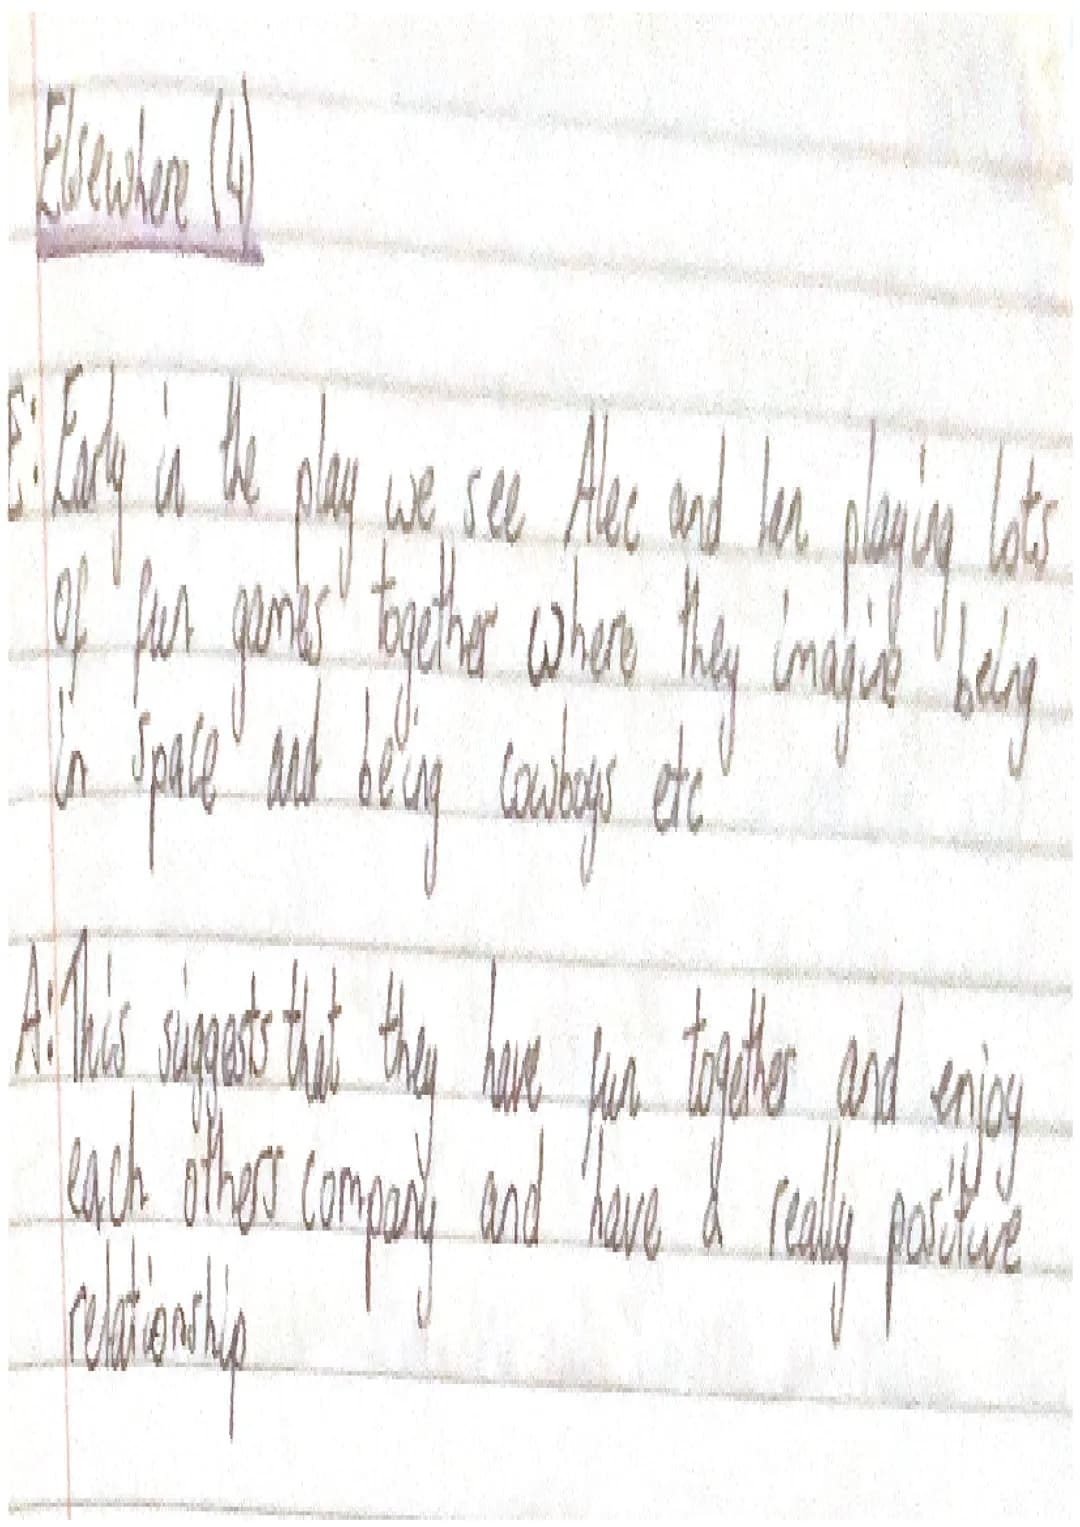 Elsewhere (4)
E: Early in the play we see Alec and Ian playing lots
of fun games together where they imagine being
in space and being cowboys etc
A: This suggests that they have fun together and enjoy
each others company and have a really positive
relationship